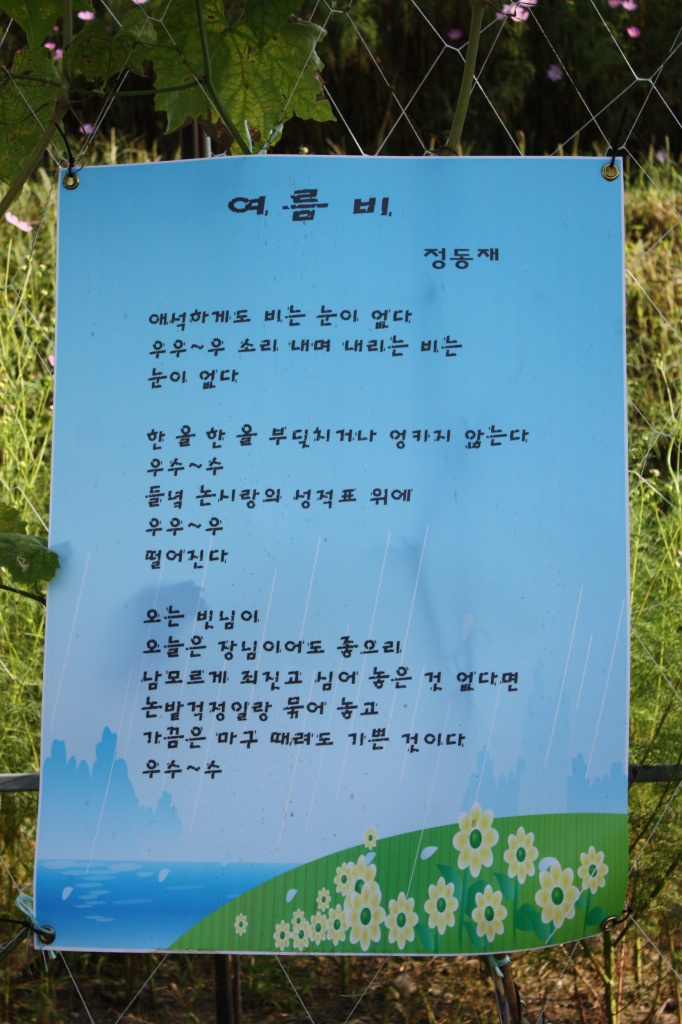 여름 비
정동재
애석하게도 비는 눈이 없다
우우~우 소리 내며 내리는 비는
눈이 없다
한 올 한 올 부딪치거나 엉키지 않는다
우수~수
들녘 논시랑의 성적표 위에
우우~우
떨어진다
오는 빗님이
오늘은 장님이어도 좋으리
남모르게 죄짓고 심어 놓은 것 없다면
논밭걱정일랑 묶어 놓고
가끔은 마구 때려도 기쁜 것이다
우수~수